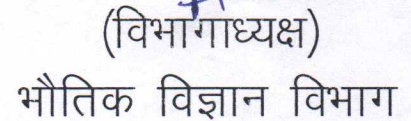 (विभागाध्यक्ष)
भौतिक विज्ञान विभाग